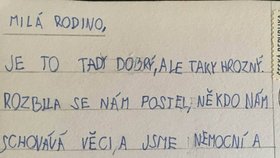 MILÁ RODINO,
JE TO TADY DOBRÝ, ALE TAKY HROZNÝ.
ROZBILA SE NÁM POSTEL, NĚKDO NÁM
SCHOVÁVÁ VĚCI, A JSME NEMOCNÍ A